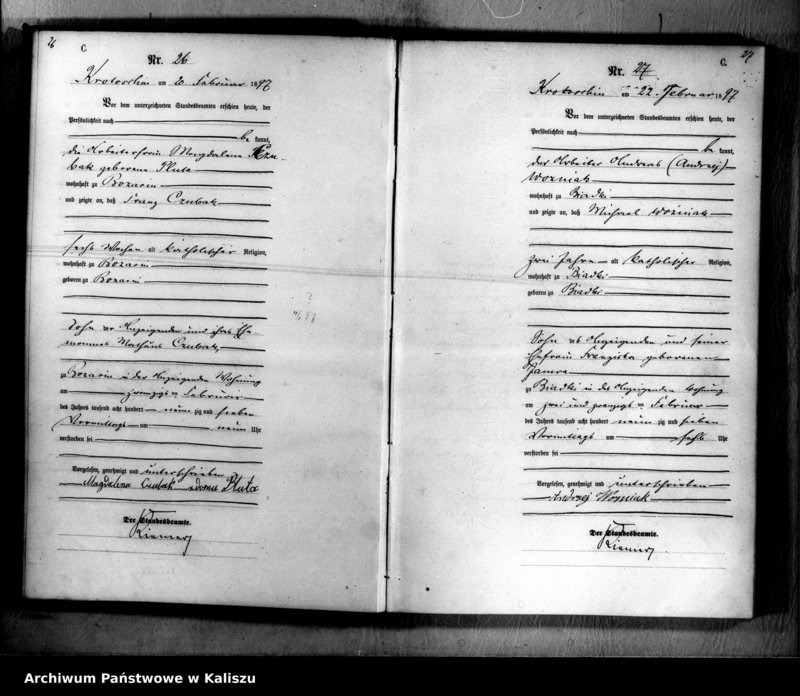 26
C.
Nr. 26
Krotoschin am 20 Februar 1897
Vor dem unterzeichneten Standesbeamten erschien heute, der
Persönlichkeit nach
be kannt,
die Arbeiterfrau Magdalena Czu-
bak geborene Pluta
wohnhaft zu Bozacin
und zeigte an, daß Franz Czubak
sechs Wochen alt katholischer Religion,
wohnhaft zu Bozacin
geboren zu Bozacin
Sohn der Anzeigenden und ihres Ehe-
mannes Mathäus Czubak,
zu Bozacin in der Anzeigenden Wohnung
am zwanzigsten Februar
des Jahres tausend acht hundert neun zig und sieben
Vormittags um neun Uhr
verstorben sei
Vorgelesen, genehmigt und unterschrieben
Magdalena Czubak zdomu Pluta
Der Standesbeamte.
27
C.
Nr. 27
Krotoschin am 22. Februar 1897
Vor dem unterzeichneten Standesbeamten erschien heute, der
Persönlichkeit nach
be kannt,
der Arbeiter Andreas (Andrzej)
Woźniak
wohnhaft zu Biadki
und zeigte an, daß Michael Woźniak
zwei Jahre alt katholischer Religion,
wohnhaft zu Biadki
geboren zu Biadki
Sohn des Anzeigenden und seiner
Ehefrau Franziska geborenen
zu Biadki in des Anzeigenden Wohnung
am zwei und zwanzigsten Februar
des Jahres tausend acht hundert neun zig und sieben
Vormittags um sechs Uhr
verstorben sei
Vorgelesen, genehmigt und unterschrieben
Andrzej Woźniak
Der Standesbeamte.
Archiwum Państwowe w Kaliszu